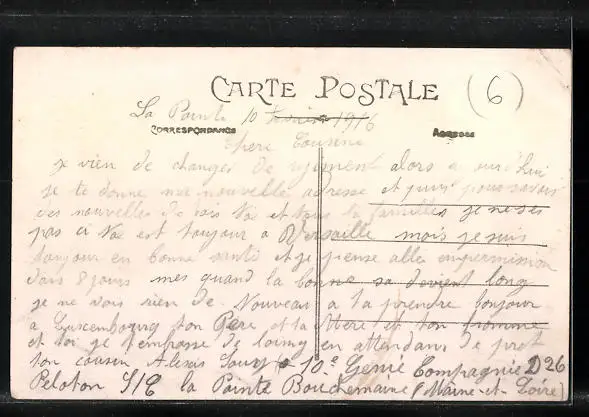 CARTE POSTALE
(6)
La Pointe 10 Fevrier 1916
CORRESPONDANCE ADRESSE
Chere Cousine
je vien de changer de alors a ourd'hui
je te donne me nouvelle adresse et puis pour savoir
des nouvelles de et tous ta familles je ne ses
pas ci est toujour a Versaille mois je suis
toujour en bonne santé et je pense alle enpermission
dans 8 jours mes quand la bonne sa devient long
je ne vois rien de Nouveau a ta prendre bonjour
a Luxembourg ton Pere et ta Mere et ton homme
et toi je t'embrasse de loing en attendans de
ton cousin Alexis 10e Genie Compagnie D26
Peloton la Pointe Bouchemaine (Maine-et-Loire)